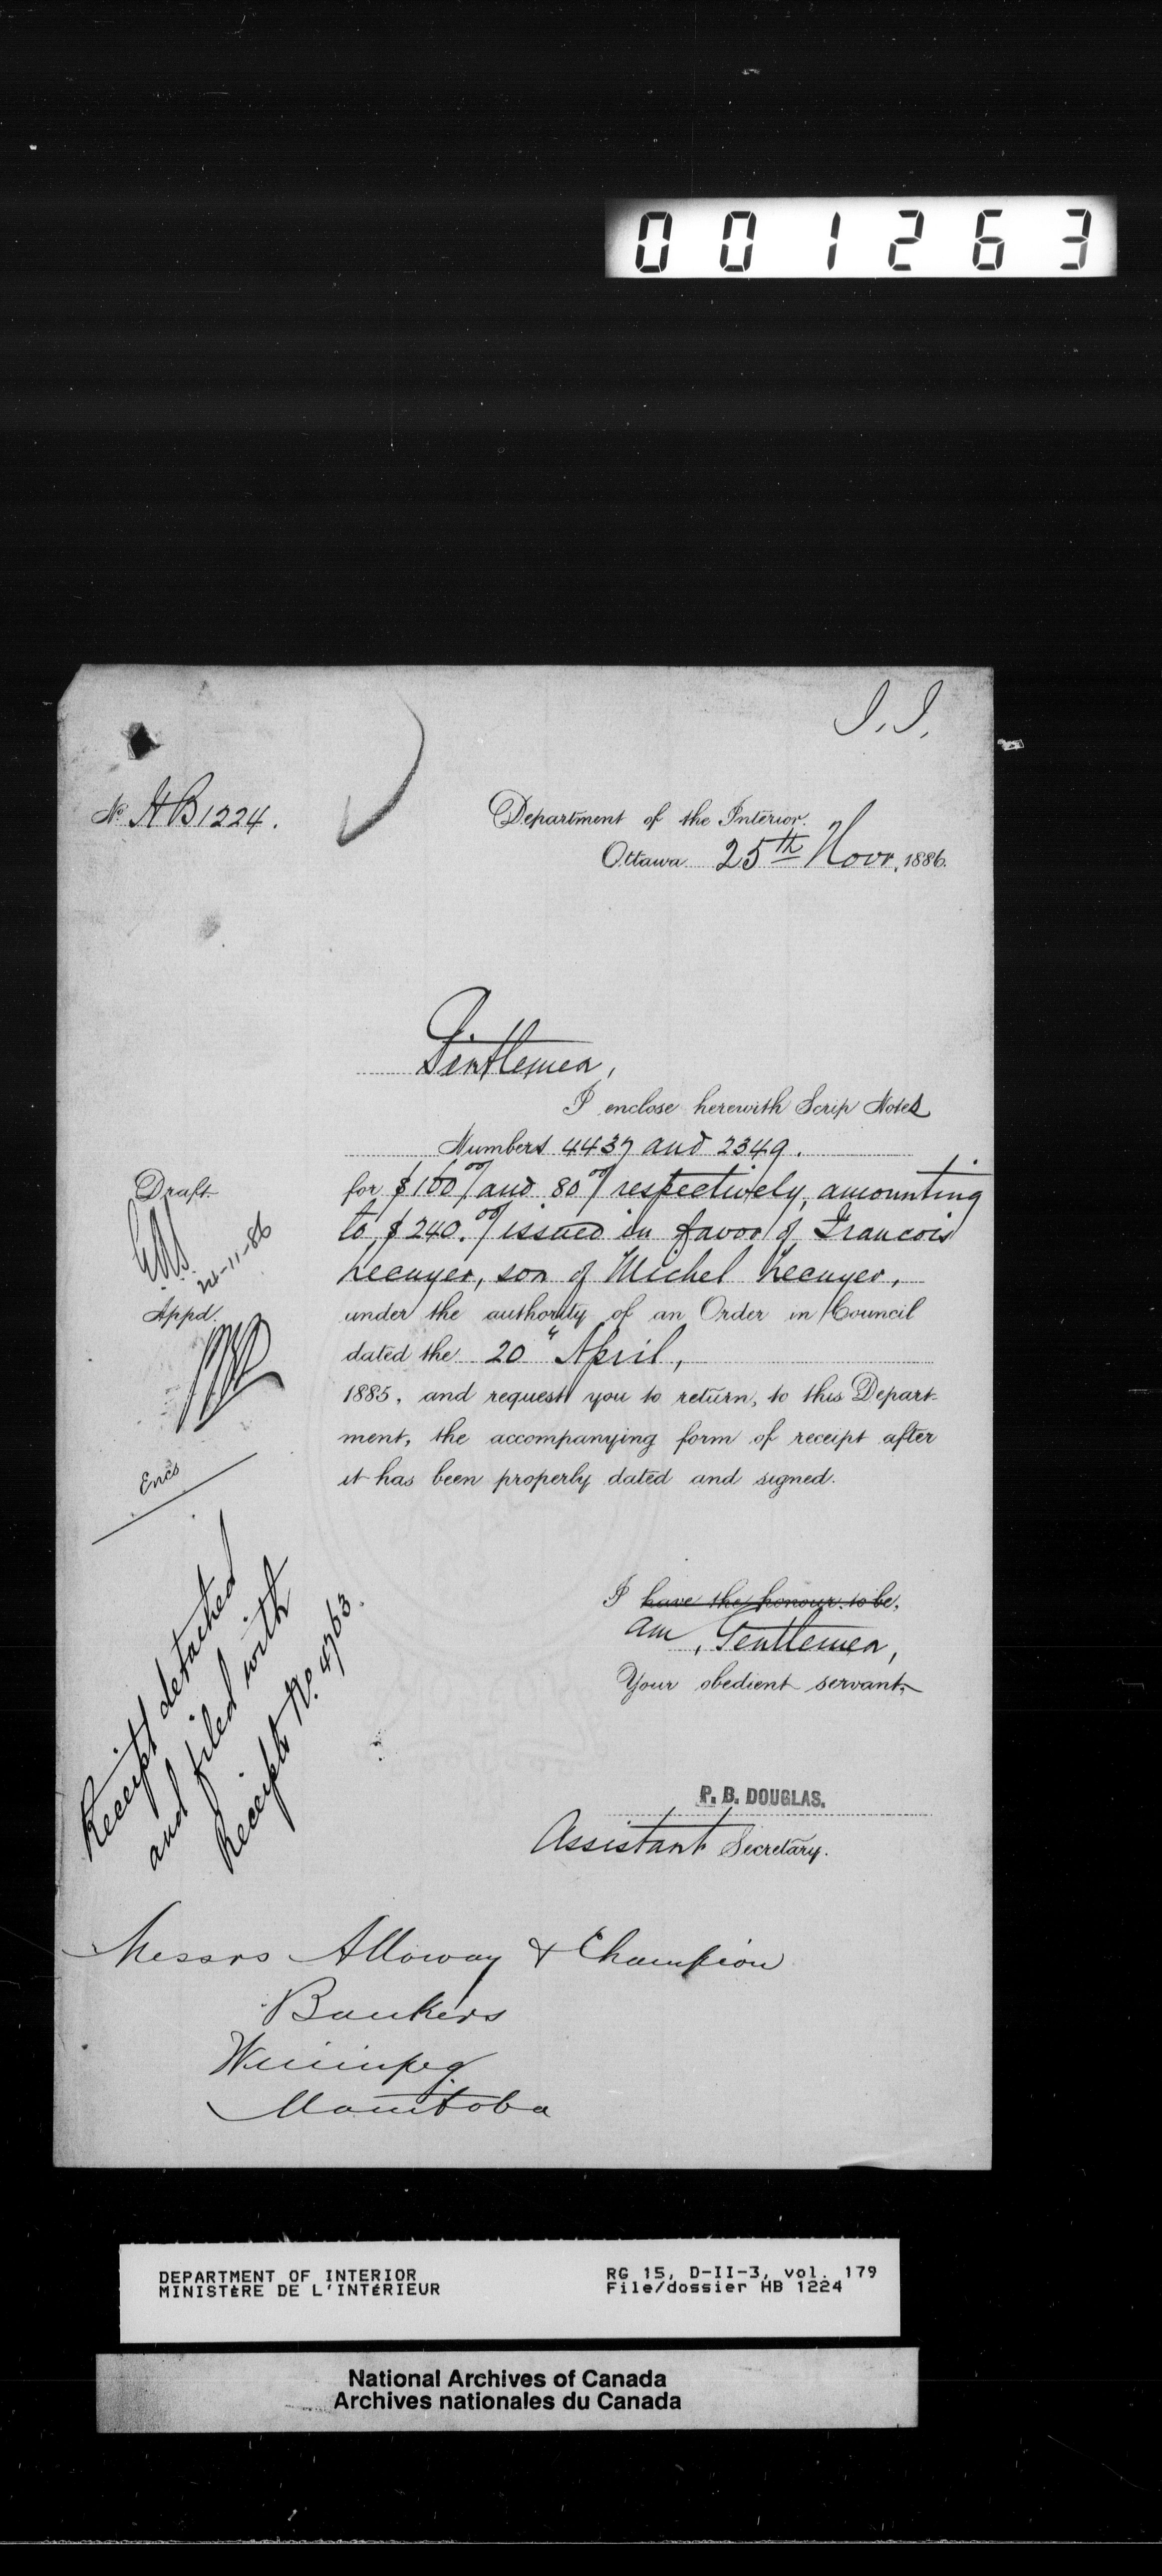 001263
J.J.
No HB 1224.
Department of the Interior.
Ottawa 25th Novr. 1886.
Gentlemen,
I enclose herewith Scrip Notes
Numbers 4437 and 2349.
for $160 00/ and 80 00/ respectively, amounting
to $240. 00/ issued in favor of Francois
Lecuyer, son of Michel Lecuyer,
under the authority of an Order in Council
dated the 20" April,
1885, and request you to return, to this Depart-
ment, the accompanying form of receipt after
it has been properly dated and signed.
Draft
24-11-86
Appd.
Encs
Receipt detached
and filed with
Receipt No. 4763.
I have the honour to be,
am, Gentlemen,
Your obedient servant,
P. B. DOUGLAS.
Assistant Secretary.
Messrs Alloway & Champion
Bankers
Winnipeg
Manitoba
DEPARTMENT OF INTERIOR
MINISTÈRE DE L'INTÉRIEUR
RG 15, D-II-3, vol. 179
File/dossier HB 1224
National Archives of Canada
Archives nationales du Canada